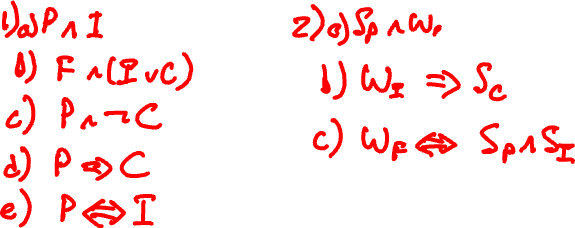 1) a) P ∧ I
b) F ∧ (I ∨ C)
c) P ∧ ¬ C
d) P ⇒ C
e) P ⇔ I
2) a) S_P ∧ W_P
b) W_I ⇒ S_C
c) W_F ⇔ S_P ∧ S_I